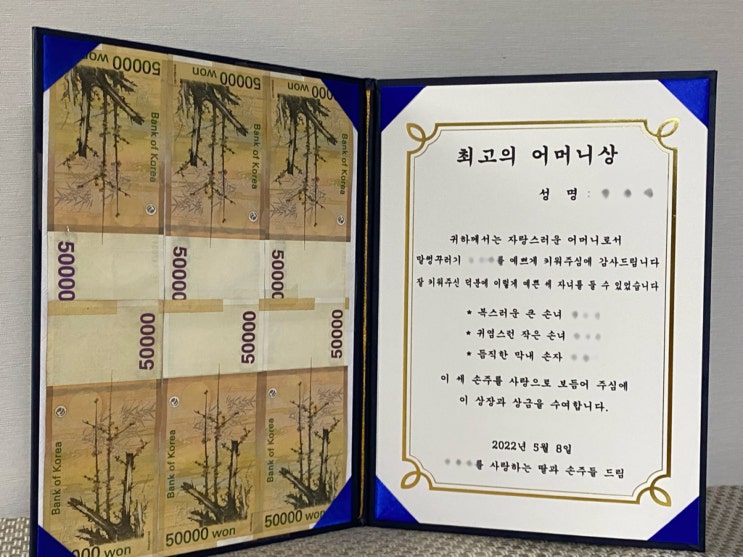 50000 won
50000 won
50000 won
Bank of Korea
Bank of Korea
Bank of Korea
50000
50000
50000
50000
50000
50000
Bank of Korea
Bank of Korea
Bank of Korea
50000 won
50000 won
50000 won
최고의 어머니상
성 명 :
귀하께서는 자랑스러운 어머니로서
말썽꾸러기 를 예쁘게 키워주심에 감사드립니다
잘 키워주신 덕분에 이렇게 예쁜 세 자녀를 둘 수 있었습니다
* 복스러운 큰 손녀
* 귀염스런 작은 손녀
* 듬직한 막내 손자
이 세 손주를 사랑으로 보듬어 주심에
이 상장과 상금을 수여합니다.
2022년 5월 8일
를 사랑하는 딸과 손주들 드림